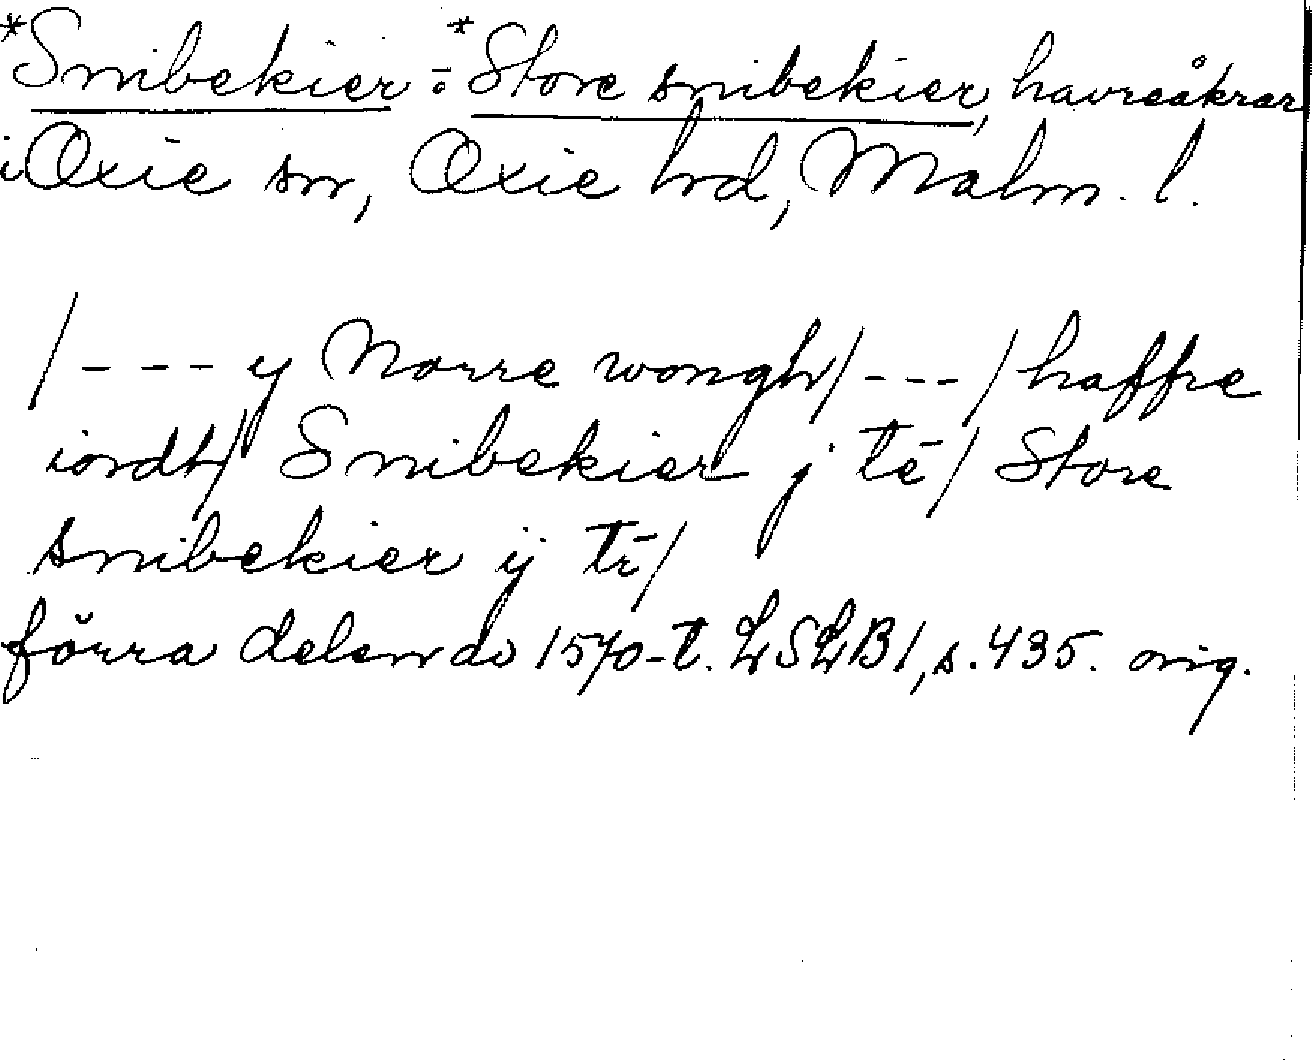 *Snibekier : *Store snibekier, havreåkrar
i Oxie sn, Oxie hd, Malm. l.
/- - - y Norre wongh/- - -/ haffre
iordt/ Snibekier j tē/ Store
snibekier ij tē/
förra delen av 1570-t. LSLB1, s. 435. orig.